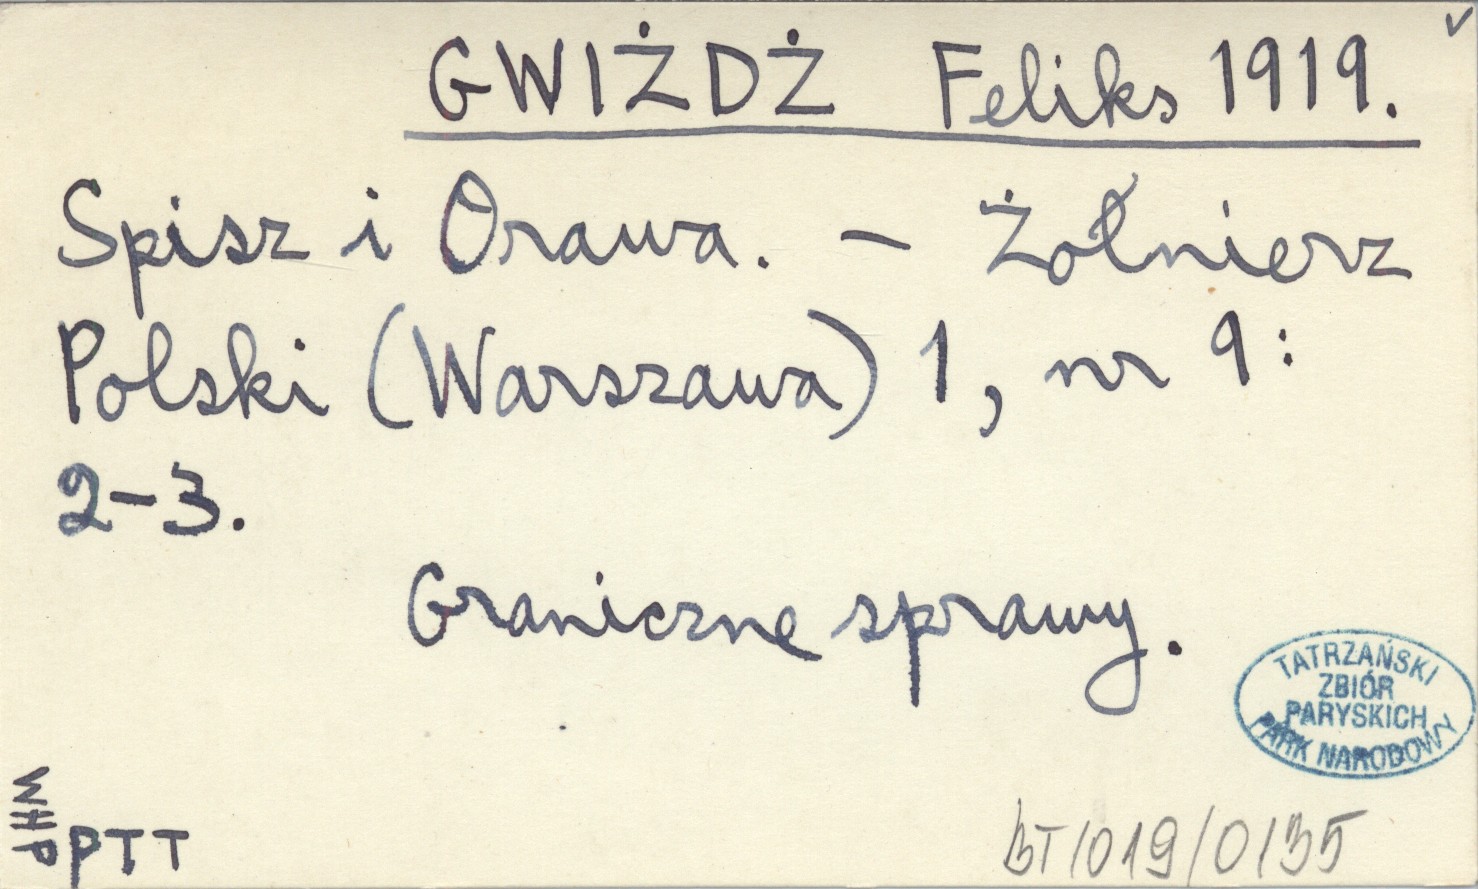 ✓
GWIŻDŻ Feliks 1919.
Spisz i Orawa. – Żołnierz
Polski (Warszawa) 1, nr 9:
2–3.
Graniczne sprawy.
TATRZAŃSKI
ZBIÓR
PARYSKICH
PARK NARODOWY
WHP
PTT
BT/019/0135